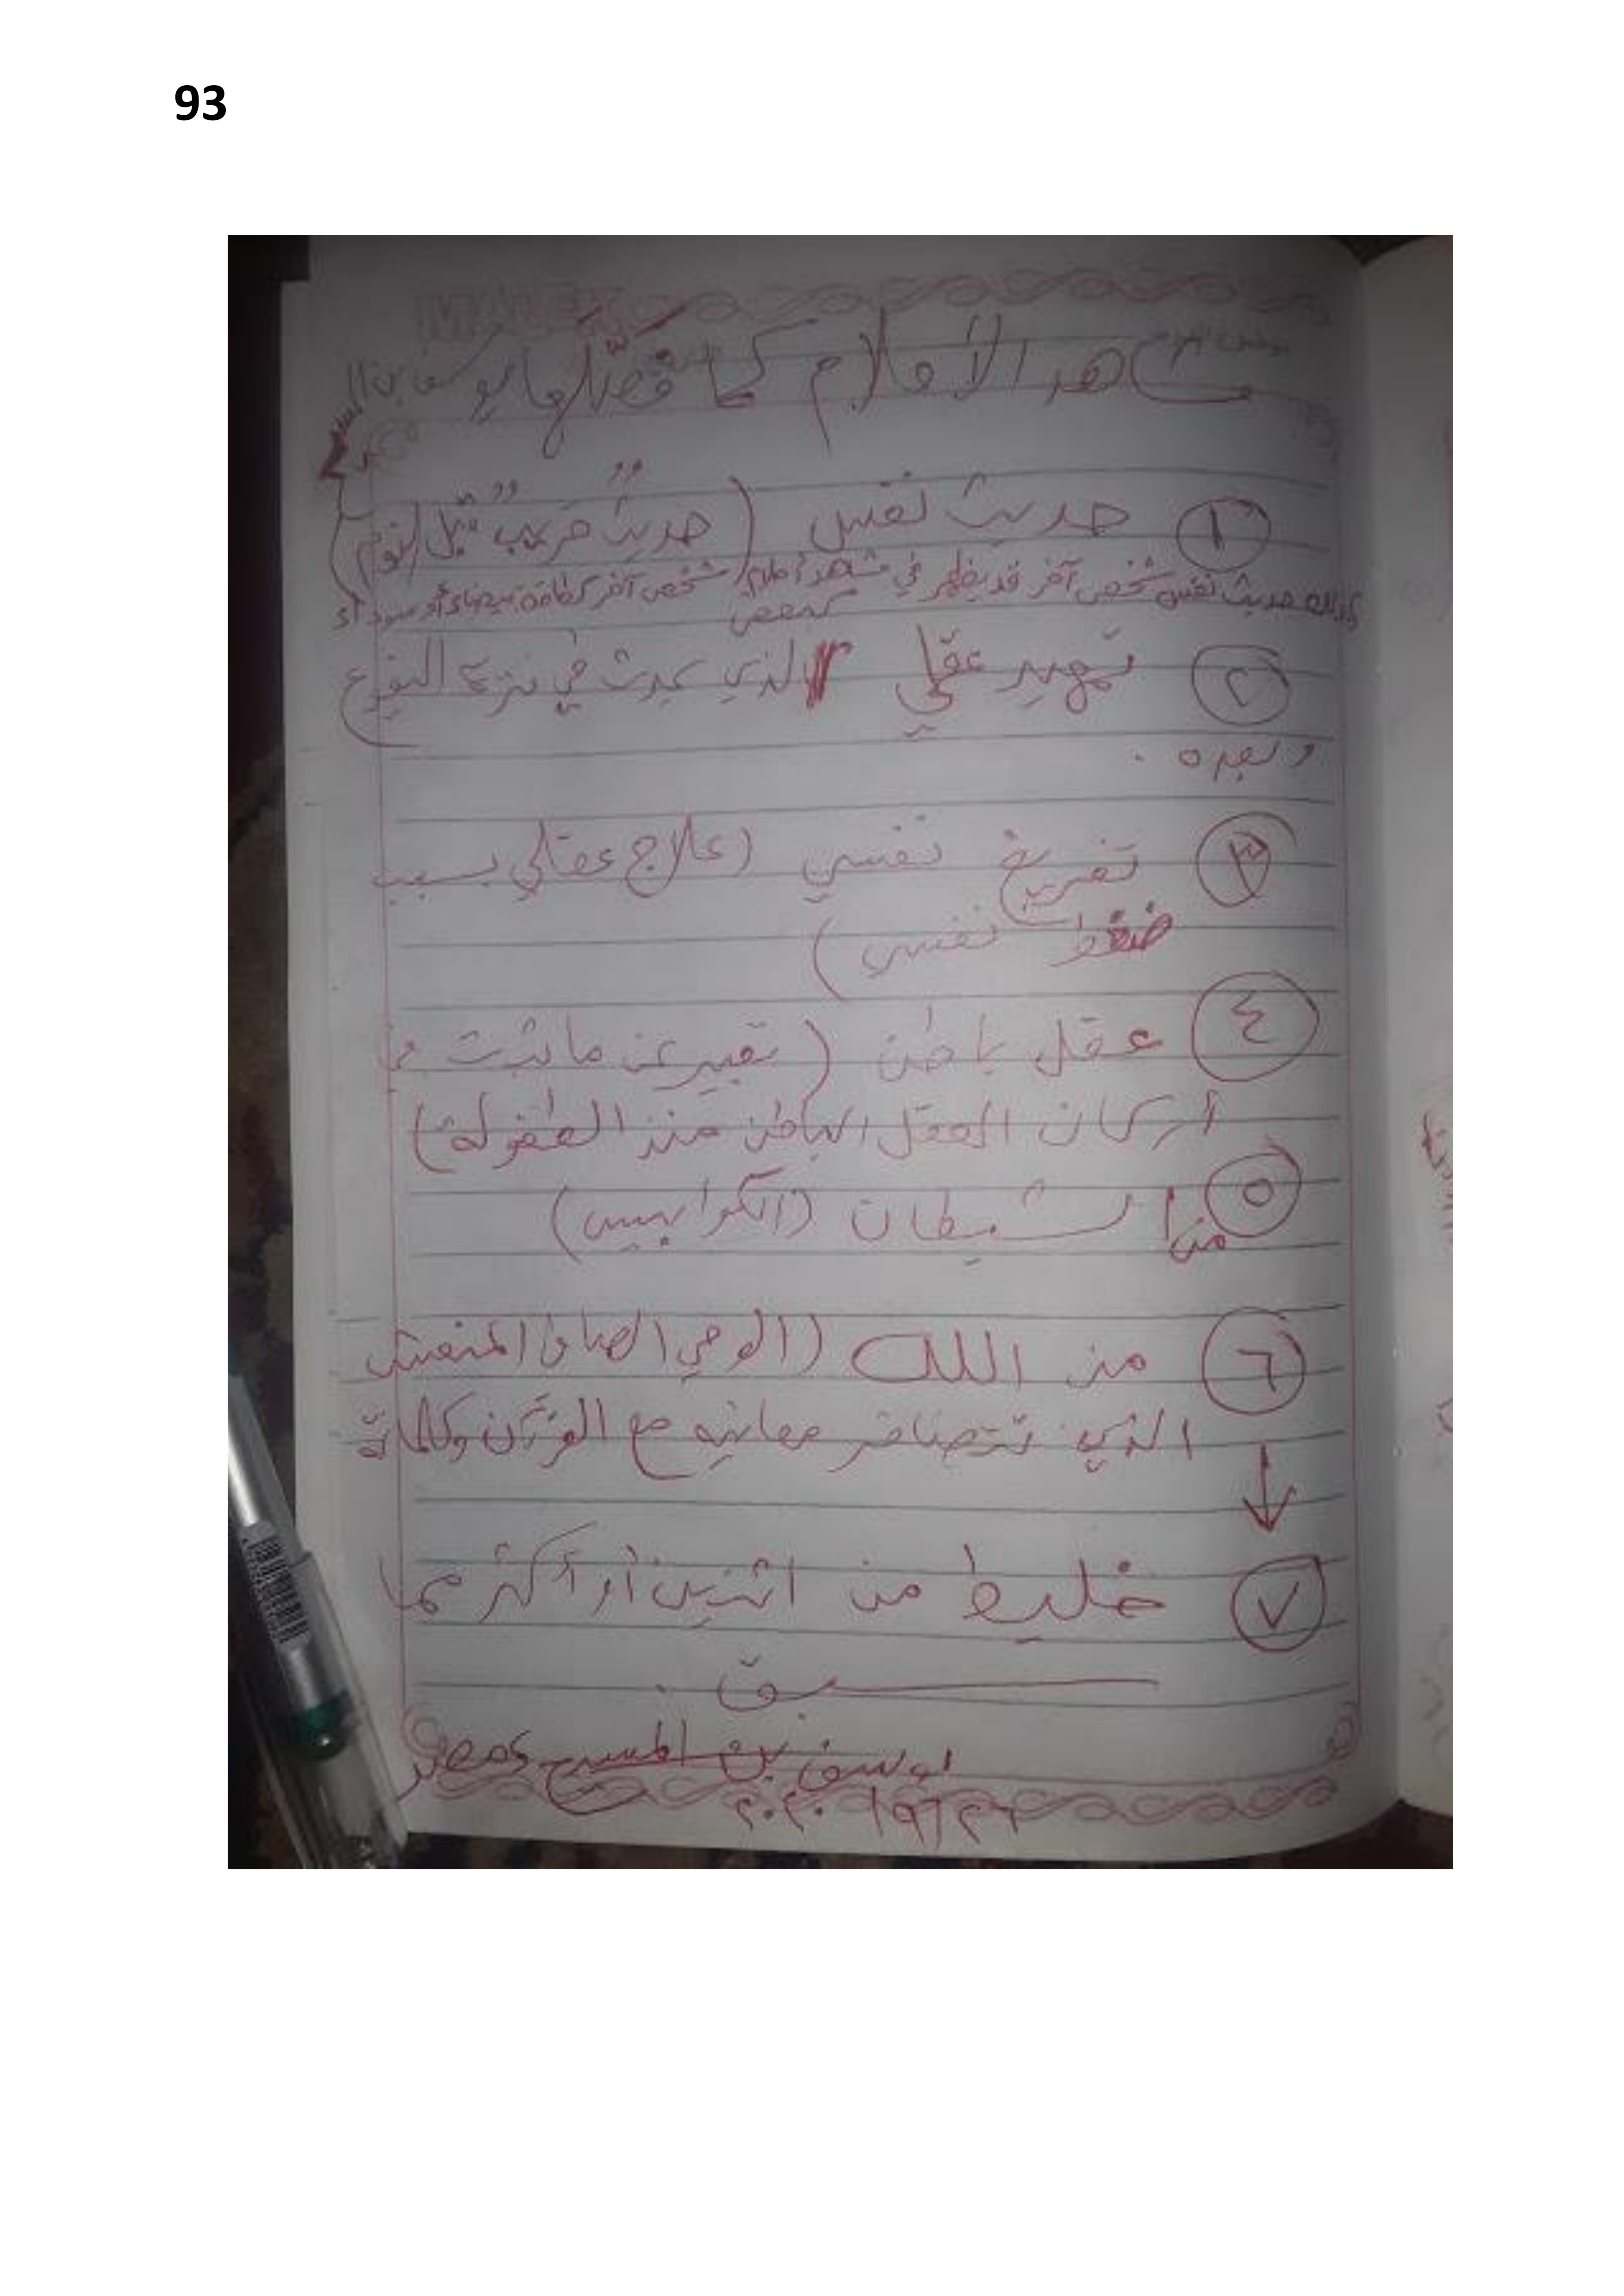 93
مشاهد الأحلام كما فصّلها يوسف بن
١ حديث نفس (حديثٌ قريبٌ قبل النوم)
كذلك حديث نفس شخص آخر قد يظهر في مشهد أحلام شخص آخر كطاقة بيضاء أو سوداء
كبعض
٢ تمهيد عقلي الذي يحدث في
وبعده .
٣ تفريغ نفسي (علاج عقلي بسبب
ضغط نفسي)
٤ عقل باطن (تعبير عن ما يثبت في
أركان العقل الباطن منذ الطفولة)
٥ من الشيطان (الكوابيس)
٦ من الله (الوحي الصافي المنعش
الذي تتضافر معانيه مع القرآن وكلماته
٧ خليط من اثنين أو أكثر مما
سبق .
يوسف بن المسيح مصر
٢٦/٩/٢٠٢٠